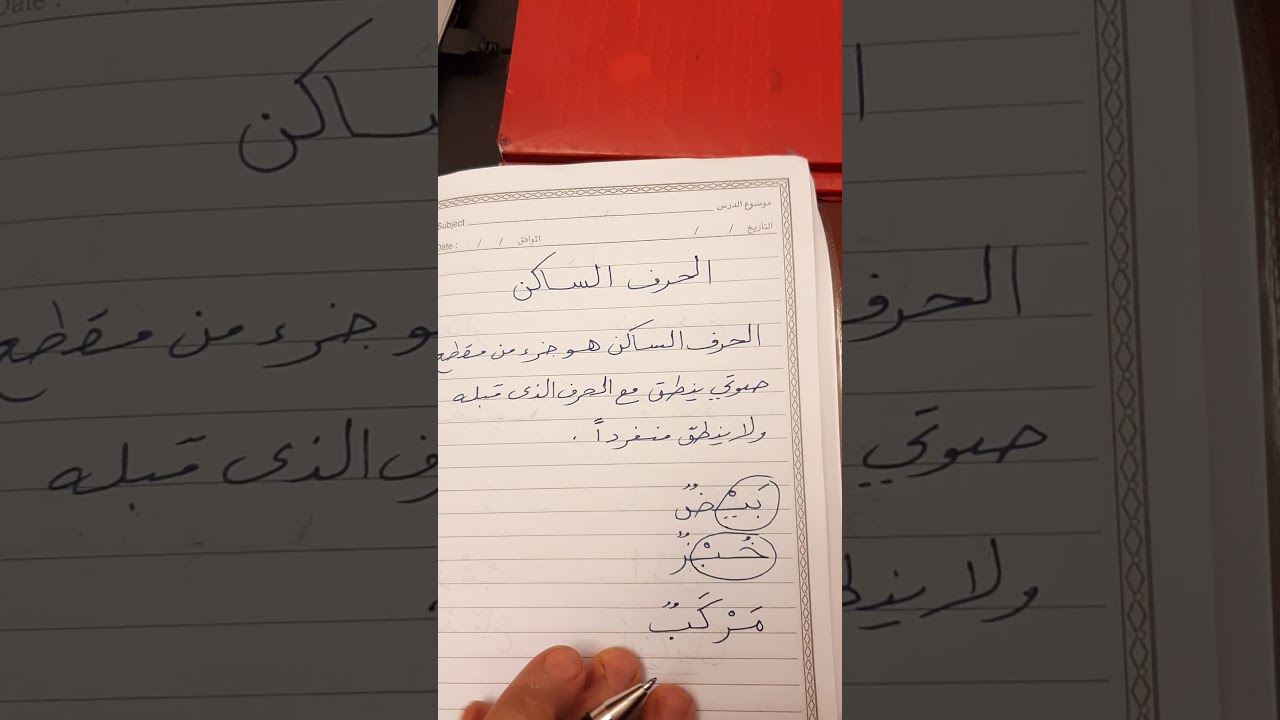 موضوع الدرس Subject
التاريخ / / الموافق / / Date :
الحرف الساكن
الحرف الساكن هو جزء من مقطع
صوتي ينطق مع الحرف الذى قبله
ولا ينطق منفرداً .
بَيْضٌ
خُبْزٌ
مَرْكَبٌ